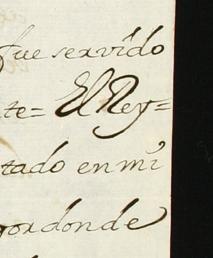 fue servido
te= El Rey=
tado en mi
por donde